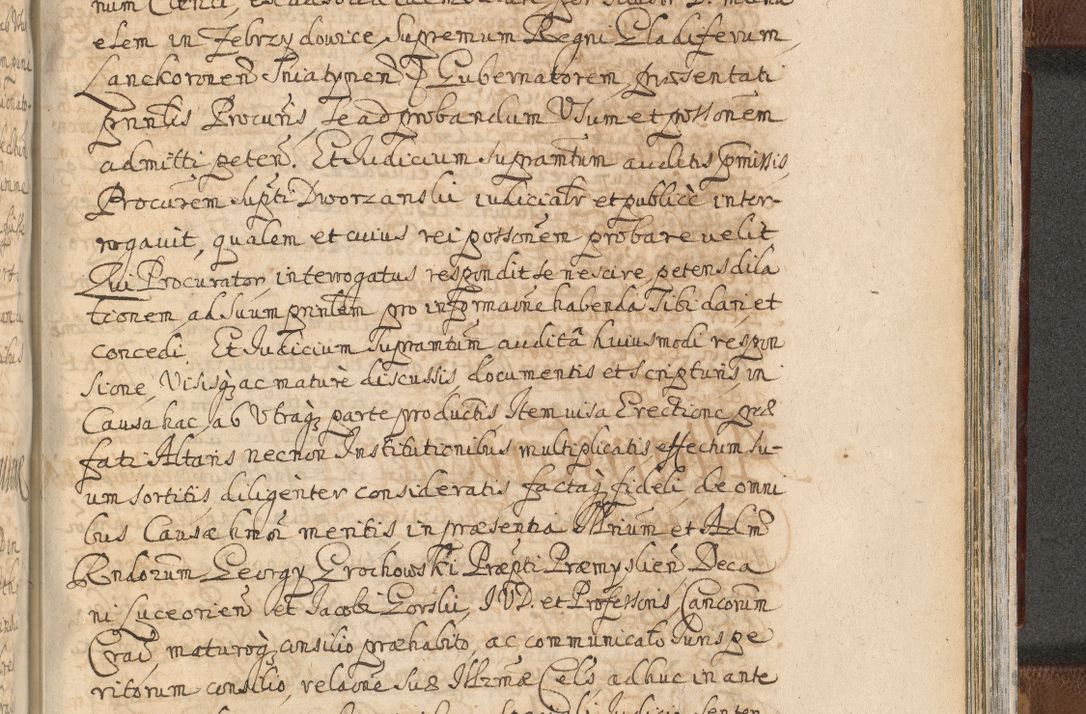 elem in Zebrzydowice, Supremum Regni Gladiferum,
Lanckoronen Sniatynen Gubernatorem præsentati
prnntis Procuris, se ad probandum Usum et possonem
admitti peten. Et Iudicium supramtum auditis pmissis,
Procurem supti Dworzanskii iudicialr et publicè inter-
rogavit, qualem et cuius rei possonem probare velit
Qui Procurator, interrogatus respondit se nescire petens dila
tionem, ad suum prnlem pro informaone habenda sibi dari, et
concedi. Et Iudicium supramtum auditâ huiusmodi respon
sione, Visisq ac maturè discussis, documentis et scripturis in
Causa hac, ab Utraq parte productis, Item visa Erectione præ
fati Altaris necnon Institutionibus multiplicatis, effectum su-
um sortitis diligenter consideratis factaq fideli de omni
bus Causæ hmoi meritis in præsentia Illrium et Adm
Rndorum Georgy Grochowski Præpti Præmyslien Deca
ni Luceorien et Iacobi Gorskii, I V D. et Professoris Cancorum
Crac, maturoq consilio præhabito, ac communicato Iuris pe
ritorum consilio, relaone suæ Illrmæ Cels adhuc in ante